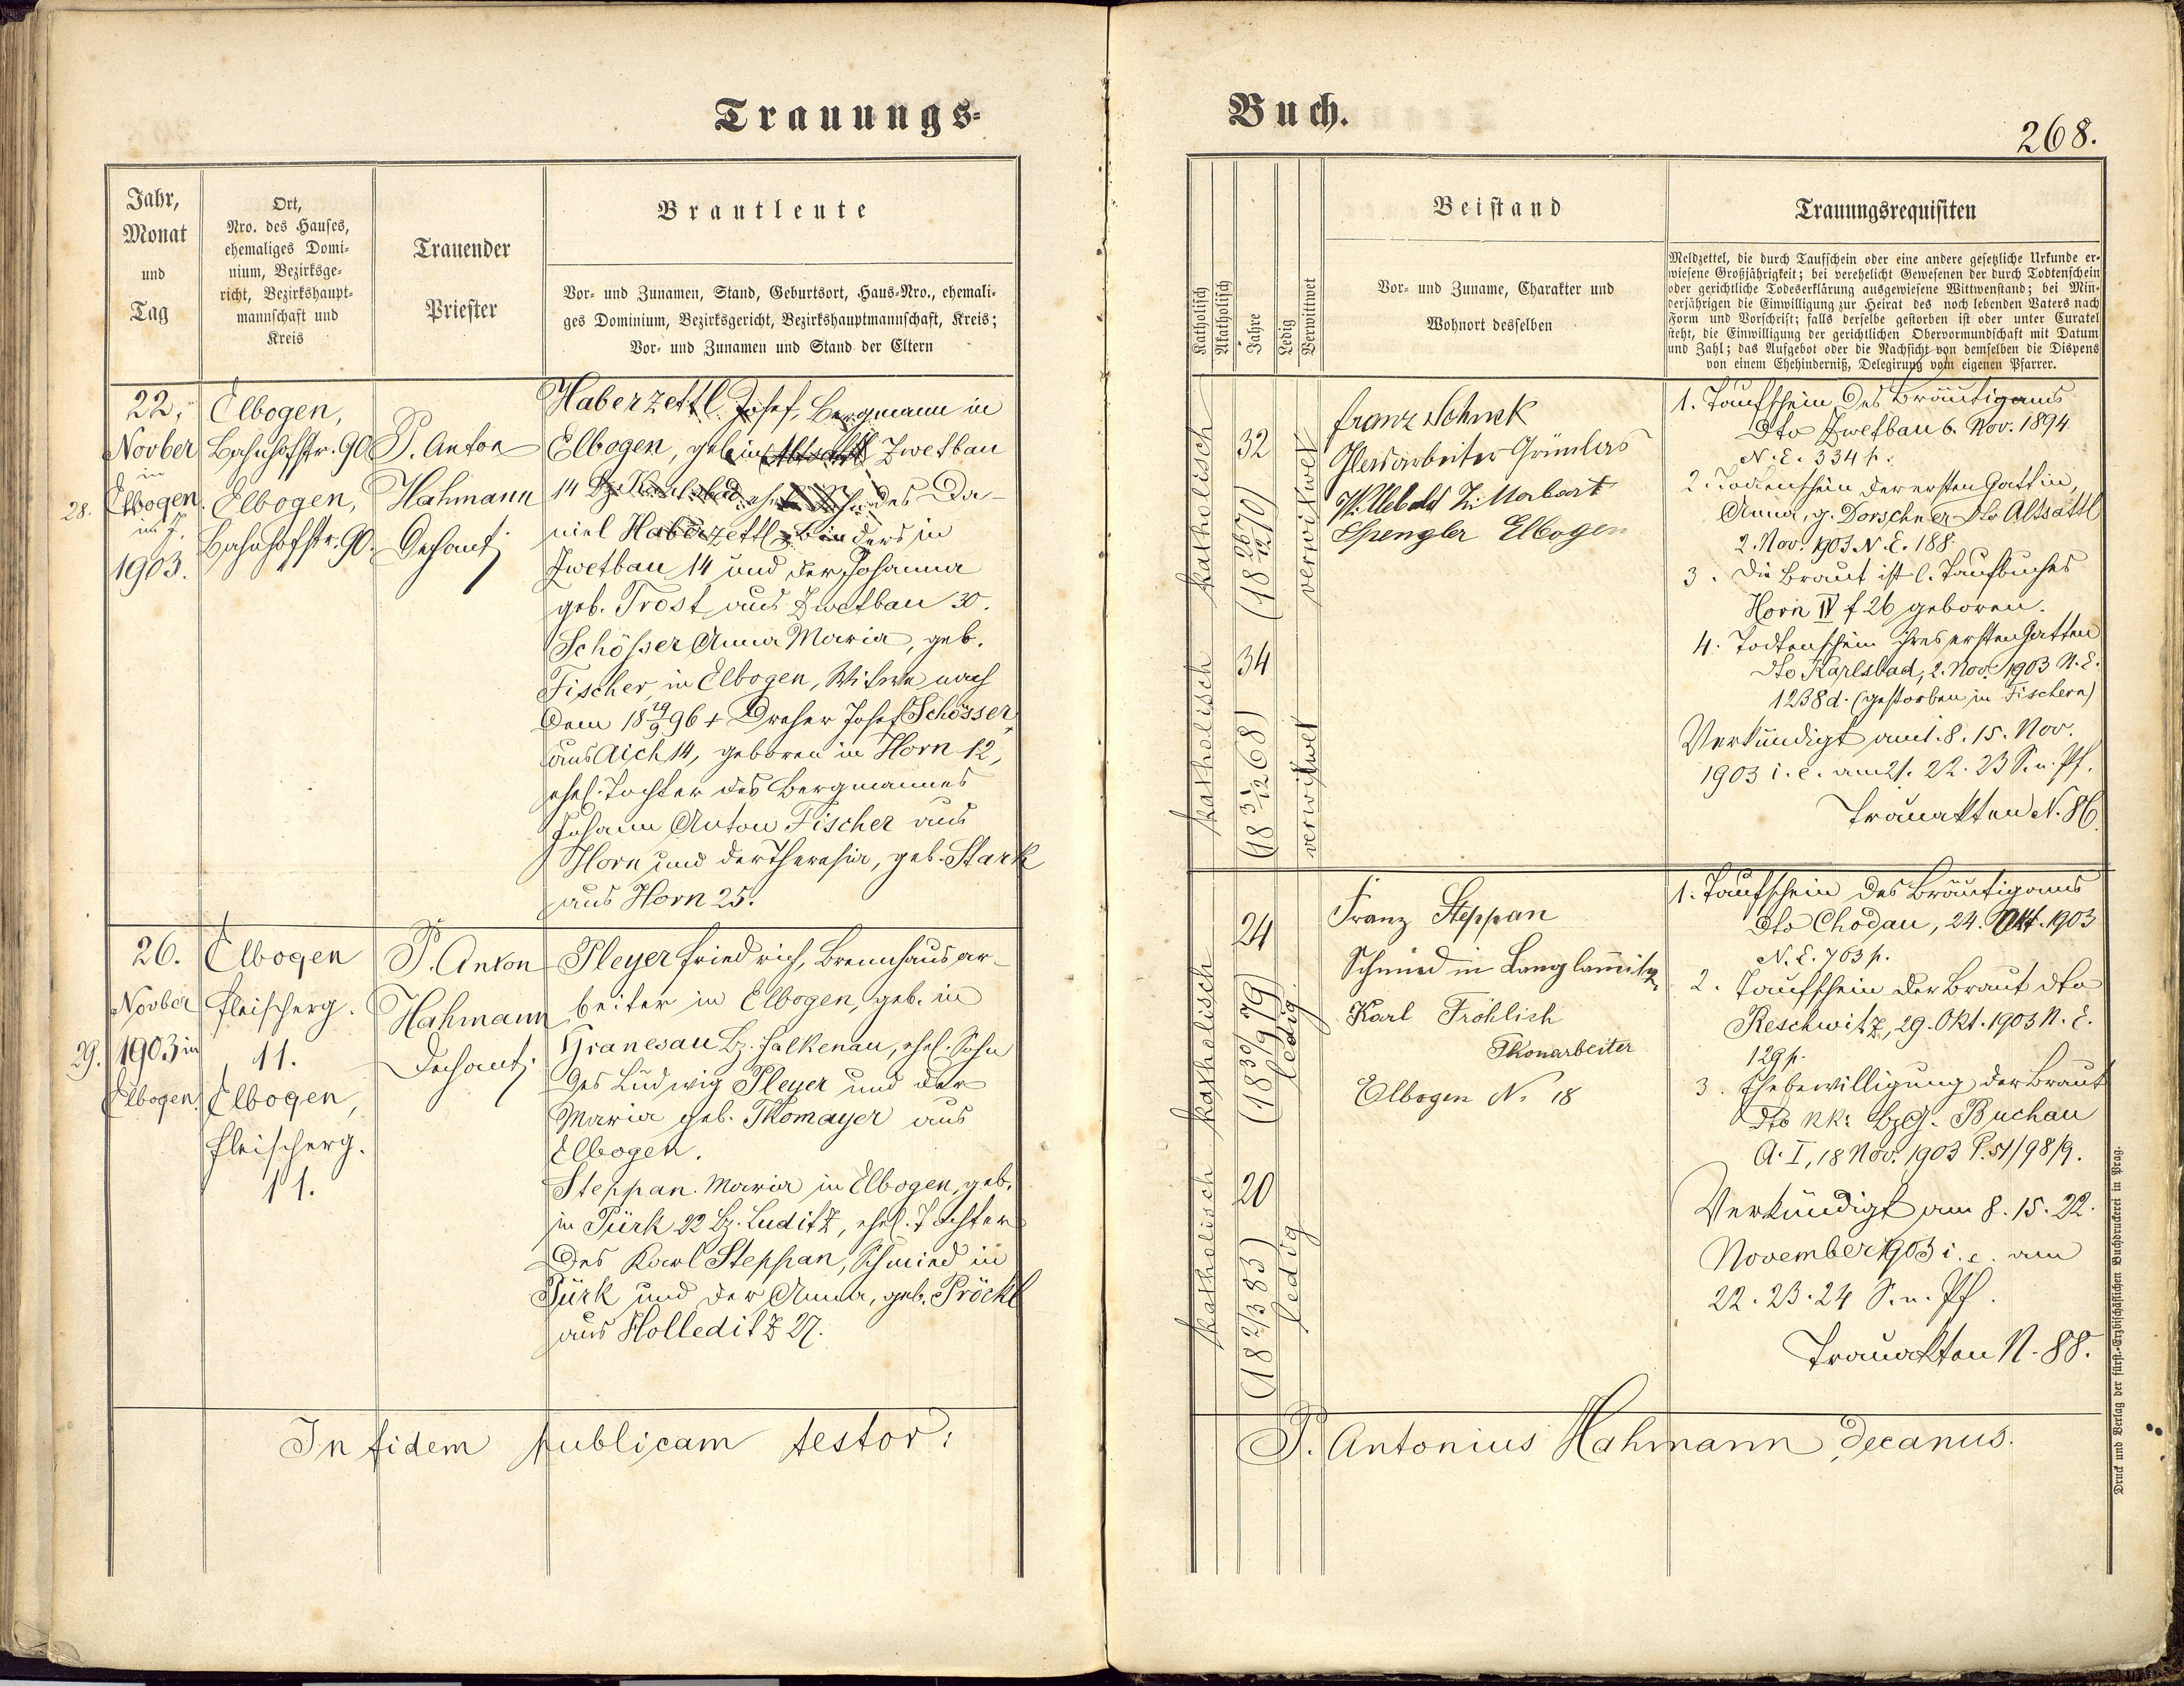 Trauungs-
Jahr,
Monat
und
Tag
Ort,
Nro. des Hauses,
ehemaliges Domi-
nium, Bezirksge-
richt, Bezirkshaupt-
mannschaft und
Kreis
Trauender
Priester
Brautleute
Vor- und Zunamen, Stand, Geburtsort, Haus-Nro., ehemali-
ges Dominium, Bezirksgericht, Bezirkshauptmannschaft, Kreis;
Vor- und Zunamen und Stand der Eltern
28.
22.
Novber
in
Elbogen
im J.
1903.
Elbogen,
Bahnhofstr. 90
Elbogen,
Bahnhofstr. 90.
P. Anton
Hahmann
Dechant
Haberzettl Josef, Bergmann in
Elbogen, geb. in Altsattl Zwetbau
14 Bz. Karlsbad, ehel. Sohn des Da-
niel Haberzettl, Binders in
Zwetbau 14 und der Johanna
geb. Trost aus Zwetbau 30.
Schösser Anna Maria, geb.
Fischer, in Elbogen, Witwe nach
dem 18 29/9 96 + Dreher Josef Schösser
aus Aich 14, geboren in Horn 12,
ehel. Tochter des Bergmannes
Johann Anton Fischer aus
Horn und der Theresia, geb. Stark
aus Horn 25.
29.
26.
Novber
1903 in
Elbogen.
Elbogen
Fleischerg.
11.
Elbogen,
Fleischerg.
11.
P. Anton
Hahmann
Dechant
Pleyer Friedrich, Brennhausar-
beiter in Elbogen, geb. in
Granesau Bz. Falkenau, ehel. Sohn
des Ludwig Pleyer und der
Maria geb. Thomayer aus
Elbogen.
Steppan Maria in Elbogen, geb.
in Pürk 22 Bz. Luditz, ehel. Tochter
des Karl Steppan, Schmied in
Pürk und der Anna, geb. Pröckl
aus Holleditz 27.
In fidem publicam testor:
Buch.
268.
Katholisch
Akatholisch
Jahre
Ledig
Verwittwet
Beistand
Vor- und Zuname, Charakter und
Wohnort desselben
Trauungsrequisiten
Meldzettel, die durch Taufschein oder eine andere gesetzliche Urkunde er-
wiesene Großjährigkeit; bei verehelicht Gewesenen der durch Todtenschein
oder gerichtliche Todeserklärung ausgewiesene Wittwenstand; bei Min-
derjährigen die Einwilligung zur Heirat des noch lebenden Vaters nach
Form und Vorschrift; falls derselbe gestorben ist oder unter Curatel
steht, die Einwilligung der gerichtlichen Obervormundschaft mit Datum
und Zahl; das Aufgebot oder die Nachsicht von demselben die Dispens
von einem Ehehinderniß, Delegirung vom eigenen Pfarrer.
katholisch
32
(18 26/12 70)
verwitwet
katholisch
34
(18 3/12 68)
verwitwet
Franz Schnek
Glasarbeiter
Willebald
Spengler Elbogen
1. Taufschein des Bräutigams
dto Zwetbau 6. Nov. 1894
N. E. 334 p.
2. Todtenschein der ersten Gattin,
Anna, g. Dorschner dto Altsattl
2. Nov. 1903 N. E. 188
3. Die Braut ist l. Taufbuches
Horn IV f 26 geboren.
4. Todtenschein ihres ersten Gatten
dto Karlsbad, 2. Nov. 1903 N. E.
1238 d. (gestorben in Fischern)
Verkündigt am 1. 8. 15. Nov.
1903 i. e. am 21. 22. 23 S. n. Pf.
Trauakten N. 86.
katholisch
24
(18 30/9 79)
ledig
katholisch
20
(18 2/3 83)
ledig
Franz Steppan
Schmied in Langlamitz
Karl Fröhlich
Thonarbeiter
Elbogen N. 18
1. Taufschein des Bräutigams
dto Chodau, 24. Okt. 1903
N. E. 763 p.
2. Taufschein der Braut dto
Reschwitz, 29. Okt. 1903 N. E.
129 p.
3. Ehebewilligung der Braut
dto kk. BzG. Buchau
A. I, 18 Nov. 1903 P. 51/98/9.
Verkündigt am 8. 15. 22.
November 1903 i. e. am
22. 23. 24 S. n. Pf.
Trauakten N. 88.
P. Antonius Hahmann, decanus.
Druck und Verlag der fürst.-Erzbischöflichen Buchdruckerei in Prag.